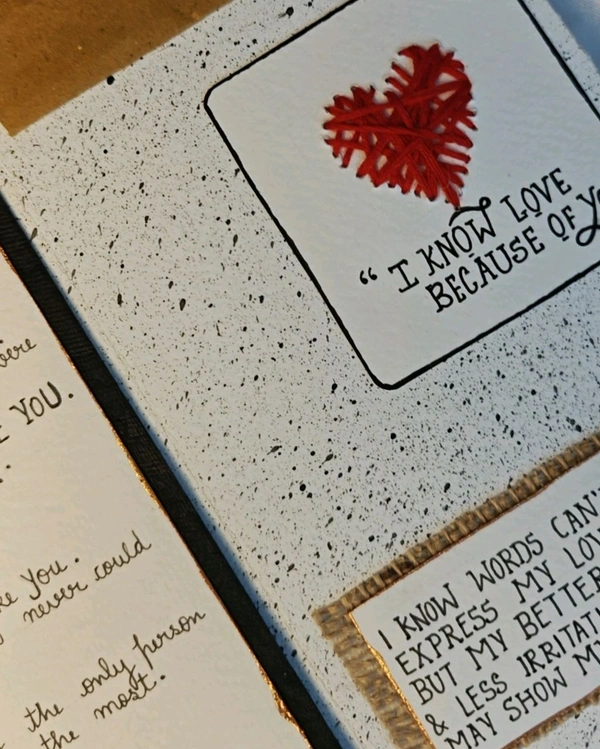 "I KNOW LOVE
BECAUSE OF
I KNOW WORDS CAN'T
EXPRESS MY LOV
BUT MY BETTER
& LESS IRRITATI
MAY SHOW MY
YOU.
you.
never could
the only person
the most.